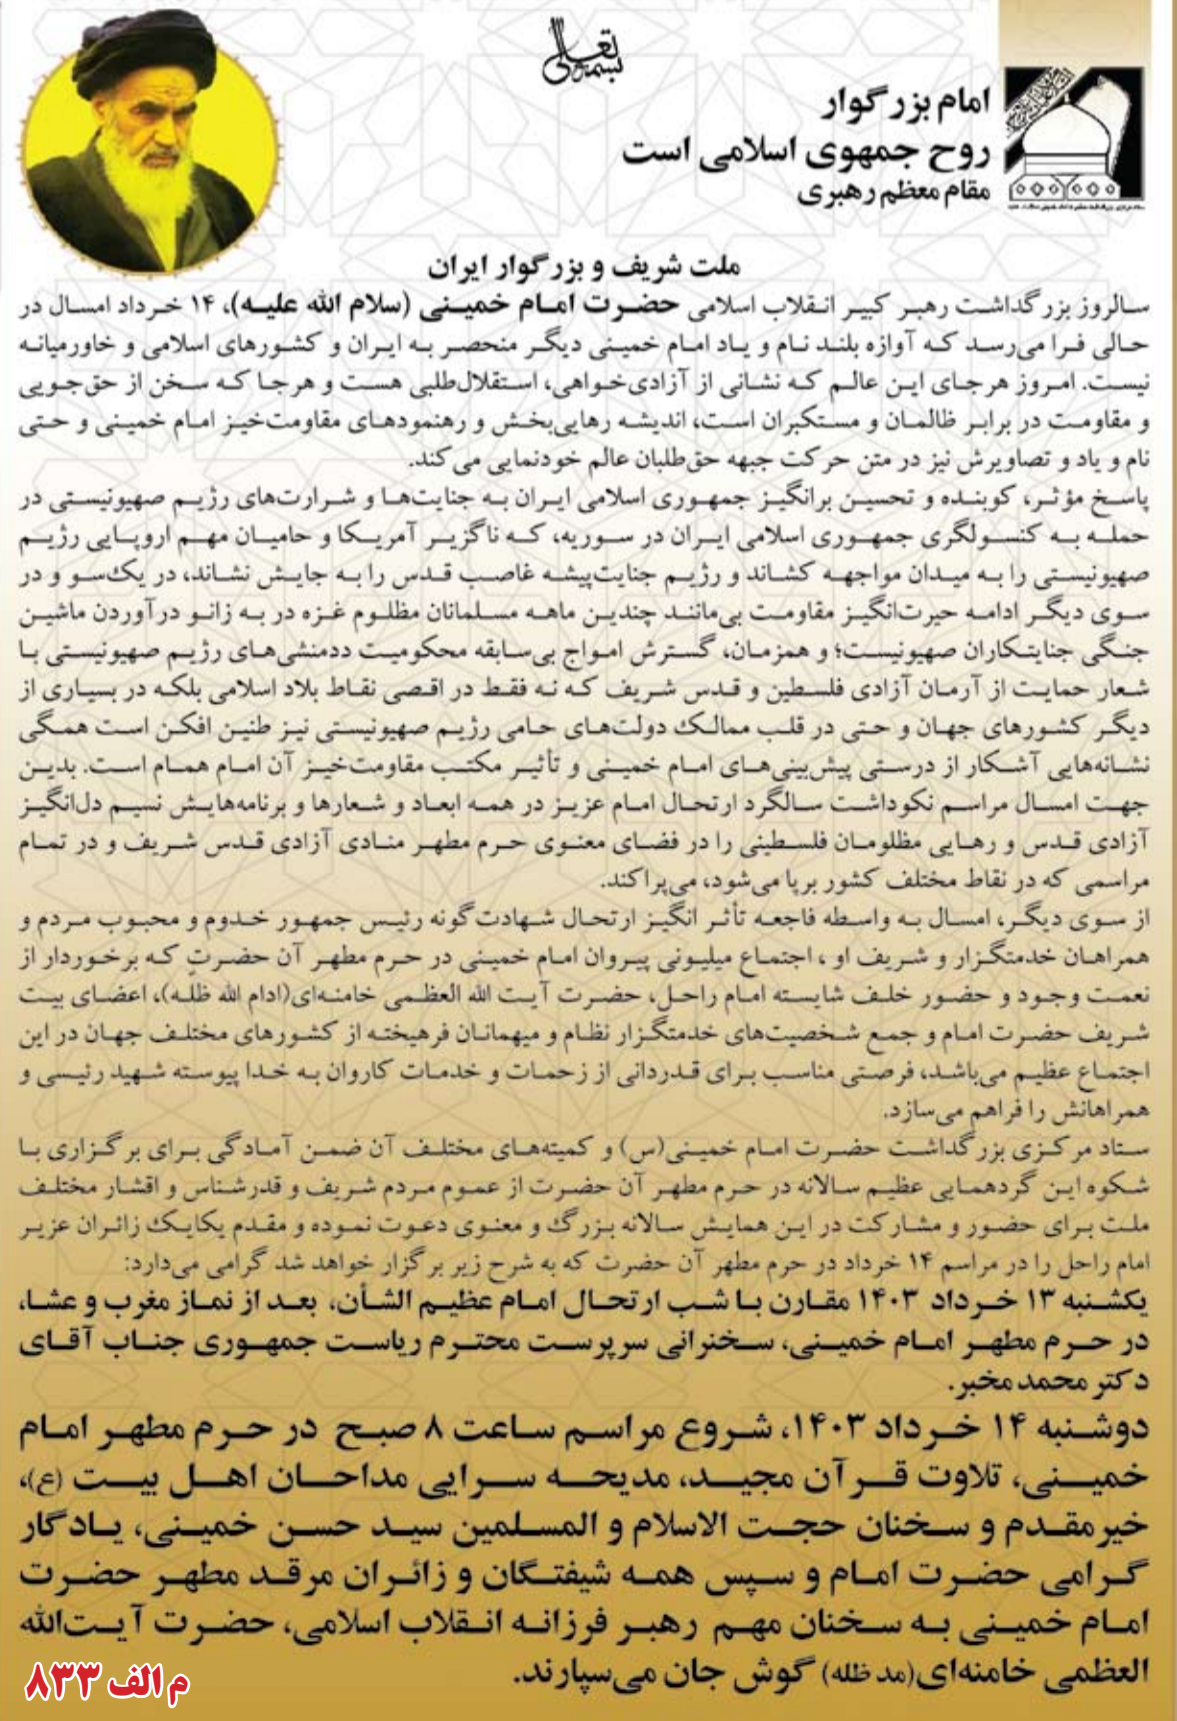 بسمه تعالی
امام بزرگوار
روح جمهوی اسلامی است
مقام معظم رهبری
ملت شریف و بزرگوار ایران
سالروز بزرگداشت رهبر کبیر انقلاب اسلامی حضرت امام خمینی (سلام الله علیه)، ۱۴ خرداد امسال در
حالی فرا می‌رسد که آوازه بلند نام و یاد امام خمینی دیگر منحصر به ایران و کشورهای اسلامی و خاورمیانه
نیست. امروز هرجای این عالم که نشانی از آزادی‌خواهی، استقلال‌طلبی هست و هرجا که سخن از حق‌جویی
و مقاومت در برابر ظالمان و مستکبران است، اندیشه رهایی‌بخش و رهنمودهای مقاومت‌خیز امام خمینی و حتی
نام و یاد و تصاویرش نیز در متن حرکت جبهه حق‌طلبان عالم خودنمایی می‌کند.
پاسخ مؤثر، کوبنده و تحسین برانگیز جمهوری اسلامی ایران به جنایت‌ها و شرارت‌های رژیم صهیونیستی در
حمله به کنسولگری جمهوری اسلامی ایران در سوریه، که ناگزیر آمریکا و حامیان مهم اروپایی رژیم
صهیونیستی را به میدان مواجهه کشاند و رژیم جنایت‌پیشه غاصب قدس را به جایش نشاند، در یک‌سو و در
سوی دیگر ادامه حیرت‌انگیز مقاومت بی‌مانند چندین ماهه مسلمانان مظلوم غزه در به زانو درآوردن ماشین
جنگی جنایتکاران صهیونیست؛ و همزمان، گسترش امواج بی‌سابقه محکومیت ددمنشی‌های رژیم صهیونیستی با
شعار حمایت از آرمان آزادی فلسطین و قدس شریف که نه فقط در اقصی نقاط بلاد اسلامی بلکه در بسیاری از
دیگر کشورهای جهان و حتی در قلب ممالک دولت‌های حامی رژیم صهیونیستی نیز طنین افکن است همگی
نشانه‌هایی آشکار از درستی پیش‌بینی‌های امام خمینی و تأثیر مکتب مقاومت‌خیز آن امام همام است. بدین
جهت امسال مراسم نکوداشت سالگرد ارتحال امام عزیز در همه ابعاد و شعارها و برنامه‌هایش نسیم دل‌انگیز
آزادی قدس و رهایی مظلومان فلسطینی را در فضای معنوی حرم مطهر منادی آزادی قدس شریف و در تمام
مراسمی که در نقاط مختلف کشور برپا می‌شود، می‌پراکند.
از سوی دیگر، امسال به واسطه فاجعه تأثر انگیز ارتحال شهادت‌گونه رئیس جمهور خدوم و محبوب مردم و
همراهان خدمتگزار و شریف او ، اجتماع میلیونی پیروان امام خمینی در حرم مطهر آن حضرتِ که برخوردار از
نعمت وجود و حضور خلف شایسته امام راحل، حضرت آیت الله العظمی خامنه‌ای(ادام الله ظله)، اعضای بیت
شریف حضرت امام و جمع شخصیت‌های خدمتگزار نظام و میهمانان فرهیخته از کشورهای مختلف جهان در این
اجتماع عظیم می‌باشد، فرصتی مناسب برای قدردانی از زحمات و خدمات کاروان به خدا پیوسته شهید رئیسی و
همراهانش را فراهم می‌سازد.
ستاد مرکزی بزرگداشت حضرت امام خمینی(س) و کمیته‌های مختلف آن ضمن آمادگی برای برگزاری با
شکوه این گردهمایی عظیم سالانه در حرم مطهر آن حضرت از عموم مردم شریف و قدرشناس و اقشار مختلف
ملت برای حضور و مشارکت در این همایش سالانه بزرگ و معنوی دعوت نموده و مقدم یکایک زائران عزیر
امام راحل را در مراسم ۱۴ خرداد در حرم مطهر آن حضرت که به شرح زیر برگزار خواهد شد گرامی می‌دارد:
یکشنبه ۱۳ خرداد ۱۴۰۳ مقارن با شب ارتحال امام عظیم الشأن، بعد از نماز مغرب و عشا،
در حرم مطهر امام خمینی، سخنرانی سرپرست محترم ریاست جمهوری جناب آقای
دکتر محمد مخبر.
دوشنبه ۱۴ خرداد ۱۴۰۳، شروع مراسم ساعت ۸ صبح در حرم مطهر امام
خمینی، تلاوت قرآن مجید، مدیحه سرایی مداحان اهل بیت (ع)،
خیرمقدم و سخنان حجت الاسلام و المسلمین سید حسن خمینی، یادگار
گرامی حضرت امام و سپس همه شیفتگان و زائران مرقد مطهر حضرت
امام خمینی به سخنان مهم رهبر فرزانه انقلاب اسلامی، حضرت آیت‌الله
العظمی خامنه‌ای(مد ظله) گوش جان می‌سپارند.
م الف ۸۳۳